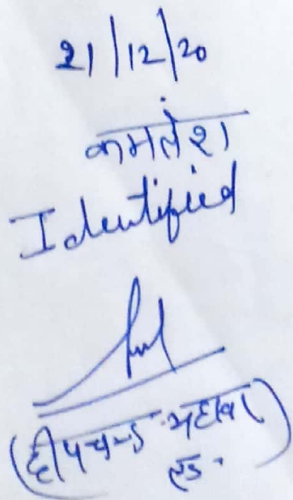 21/12/20
कमलेश
Identified
(दीपचन्ड
एड.